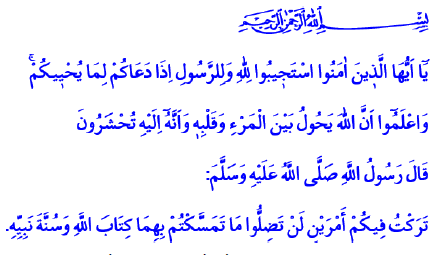 بِسْمِ اللهِ الرَّحْمٰنِ الرَّحِيمِ
يَٓا اَيُّهَا الَّذ۪ينَ اٰمَنُوا اسْتَج۪يبُوا لِلّٰهِ وَلِلرَّسُولِ اِذَا دَعَاكُمْ لِمَا يُحْي۪يكُمْۚ
وَاعْلَمُٓوا اَنَّ اللهَ يَحُولُ بَيْنَ الْمَرْءِ وَقَلْبِه۪ وَاَنَّهُٓ اِلَيْهِ تُحْشَرُونَ
قَالَ رَسُولُ اللَّهِ صَلَّى اللَّهُ عَلَيْهِ وَسَلَّمَ:
تَرَكْتُ فِيكُمْ أَمْرَيْنِ لَنْ تَضِلُّوا مَا تَمَسَّكْتُمْ بِهِمَا كِتَابَ اللَّهِ وَسُنَّةَ نَبِيِّهِ.